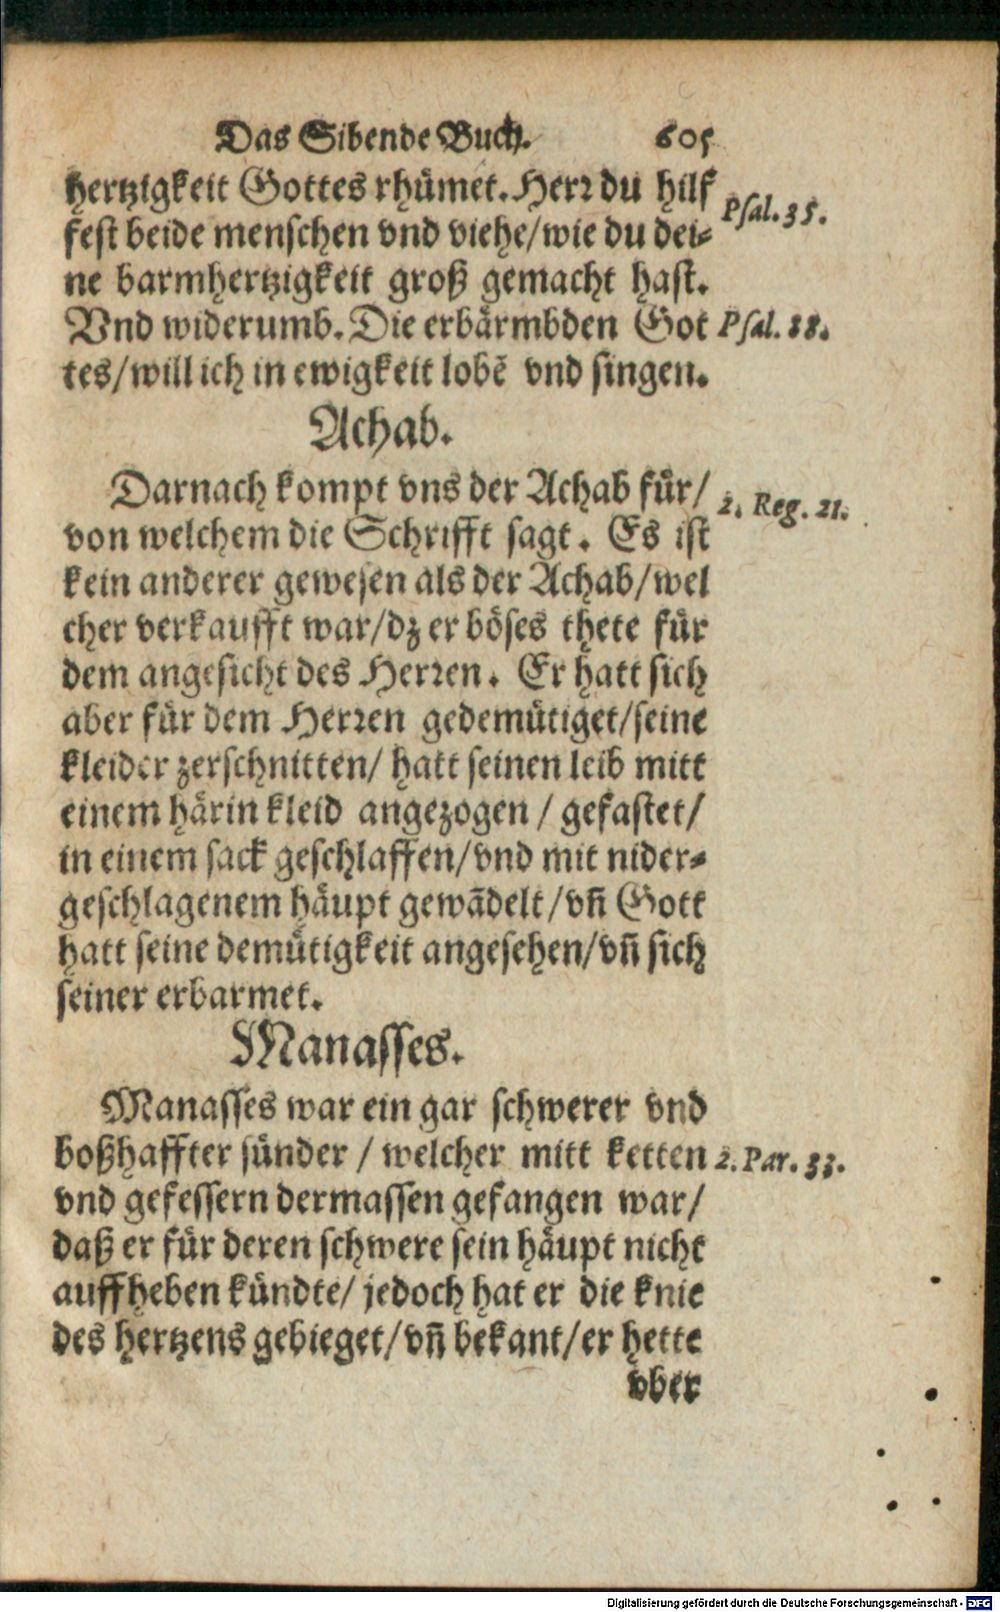 Das Sibende Buch. 605
hertzigkeit Gottes rhümet. Herr du hilf
fest beide menschen vnd viehe/wie du dei-
ne barmhertzigkeit groß gemacht hast.
Vnd widerumb. Die erbärmbden Got
tes/will ich in ewigkeit lobē vnd singen.
Psal. 35.
Psal. 88.
Achab.
Darnach kompt vns der Achab für/
von welchem die Schrifft sagt. Es ist
kein anderer gewesen als der Achab/wel
cher verkaufft war/dz er böses thete für
dem angesicht des Herren. Er hatt sich
aber für dem Herren gedemütiget/seine
kleider zerschnitten/ hatt seinen leib mitt
einem härin kleid angezogen / gefastet/
in einem sack geschlaffen/vnd mit nider-
geschlagenem häupt gewādelt/vñ Gott
hatt seine demütigkeit angesehen/vñ sich
seiner erbarmet.
2. Reg. 21.
Manasses.
Manasses war ein gar schwerer vnd
boßhaffter sünder / welcher mitt ketten
vnd gefessern dermassen gefangen war/
daß er für deren schwere sein häupt nicht
auffheben kündte/ jedoch hat er die knie
des hertzens gebieget/vñ bekant/er hette
2. Par. 33.
vber
Digitalisierung gefördert durch die Deutsche Forschungsgemeinschaft - DFG